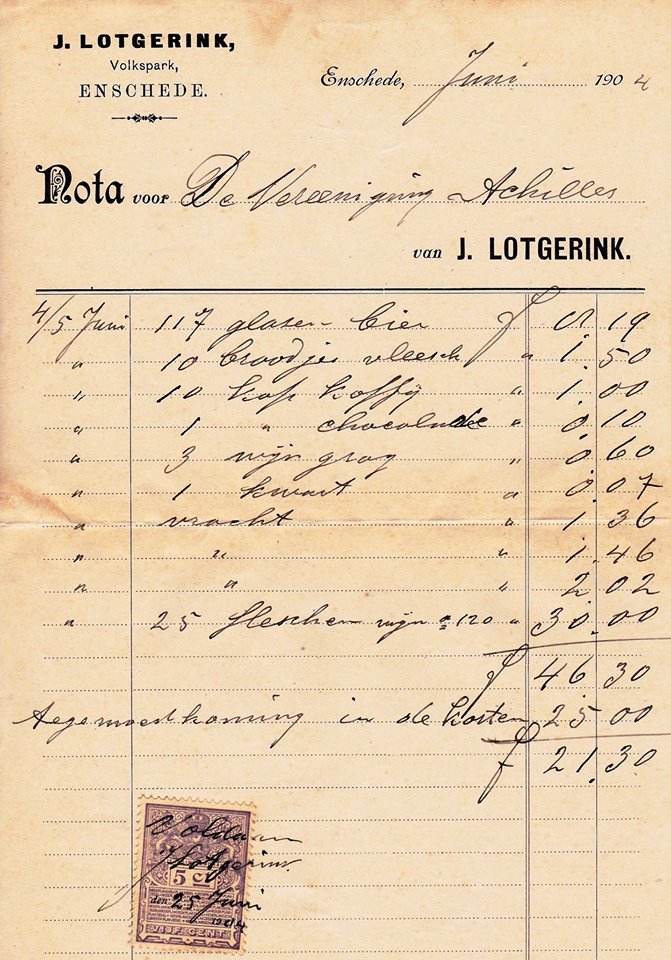 J. LOTGERINK,
Volkspark,
ENSCHEDE.
Enschede, Juni 1904
Nota voor De Vereeniging Achilles
van J. LOTGERINK.
4/5 Juni 117 glasen bier f 8 19
" 10 broodjes vleesch " 1. 50
" 10 kop koffij " 1. 00
" 1 " chocolade " 0. 10
" 3 wijn grog " 0. 60
" 1 kwart " 0.07
" vracht " 1. 36
" " " 1. 46
" " " 2. 02
" 25 flesschen wijn a 120 " 30.00
f 46 30
tegemoetkoming in de kosten 25 00
f 21. 30
Voldaan
J Lotgerink.
5 ct
den 25 Juni
1904
VIJF CENT